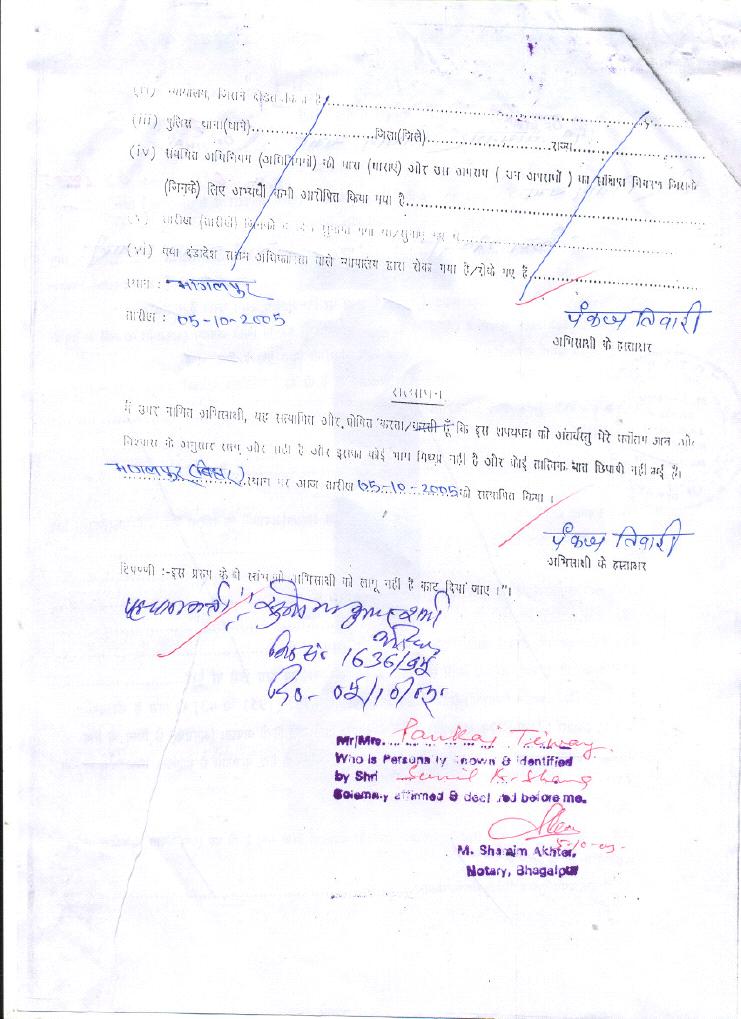 (ii) न्यायालय, जिसने दंडित किया है
(iii) पुलिस थाना(थाने)..............जिला(जिले)..............राज्य..............
(iv) संबंधित अधिनियम (अधिनियमों) की धारा (धाराएं) और उस अपराध ( उन अपराधों ) का संक्षिप्त विवरण जिसके
(जिनके) लिए अभ्यर्थी कभी आरोपित किया गया है..............
तारीख (तारीखें) जिनको
(vi) क्या दंडादेश सक्षम अधिकारिता वाले न्यायालय द्वारा रोका गया है/रोके गए हैं..............
स्थान : भागलपुर
तारीख : 05-10-2005
पंकज तिवारी
अभिसाक्षी के हस्ताक्षर
सत्यापन
मैं उपर नामित अभिसाक्षी, यह सत्यापित और घोषित करता/करती हूँ कि इस शपथपत्र की अंतर्वस्तु मेरे सर्वोत्तम ज्ञान और
विश्वास के अनुसार सत्य और सही है और इसका कोई भाग मिथ्या नहीं है और कोई तात्विक बात छिपायी नहीं गई है।
भागलपुर (बिहार) स्थान पर आज तारीख 05-10-2005 को सत्यापित किया ।
पंकज तिवारी
अभिसाक्षी के हस्ताक्षर
टिप्पणी :-इस प्ररूप के जो स्तंभ अभिसाक्षी को लागू नहीं है काट दिया जाए ।"।
पहचानकर्ता
1636/
Mr/Mrs. Pankaj Tiwary
Who is Personally known & identified
by Shri Sunil K. Sharma
Solemnly affirmed & declared before me.
5-10-05
M. Shamim Akhter,
Notary, Bhagalpur